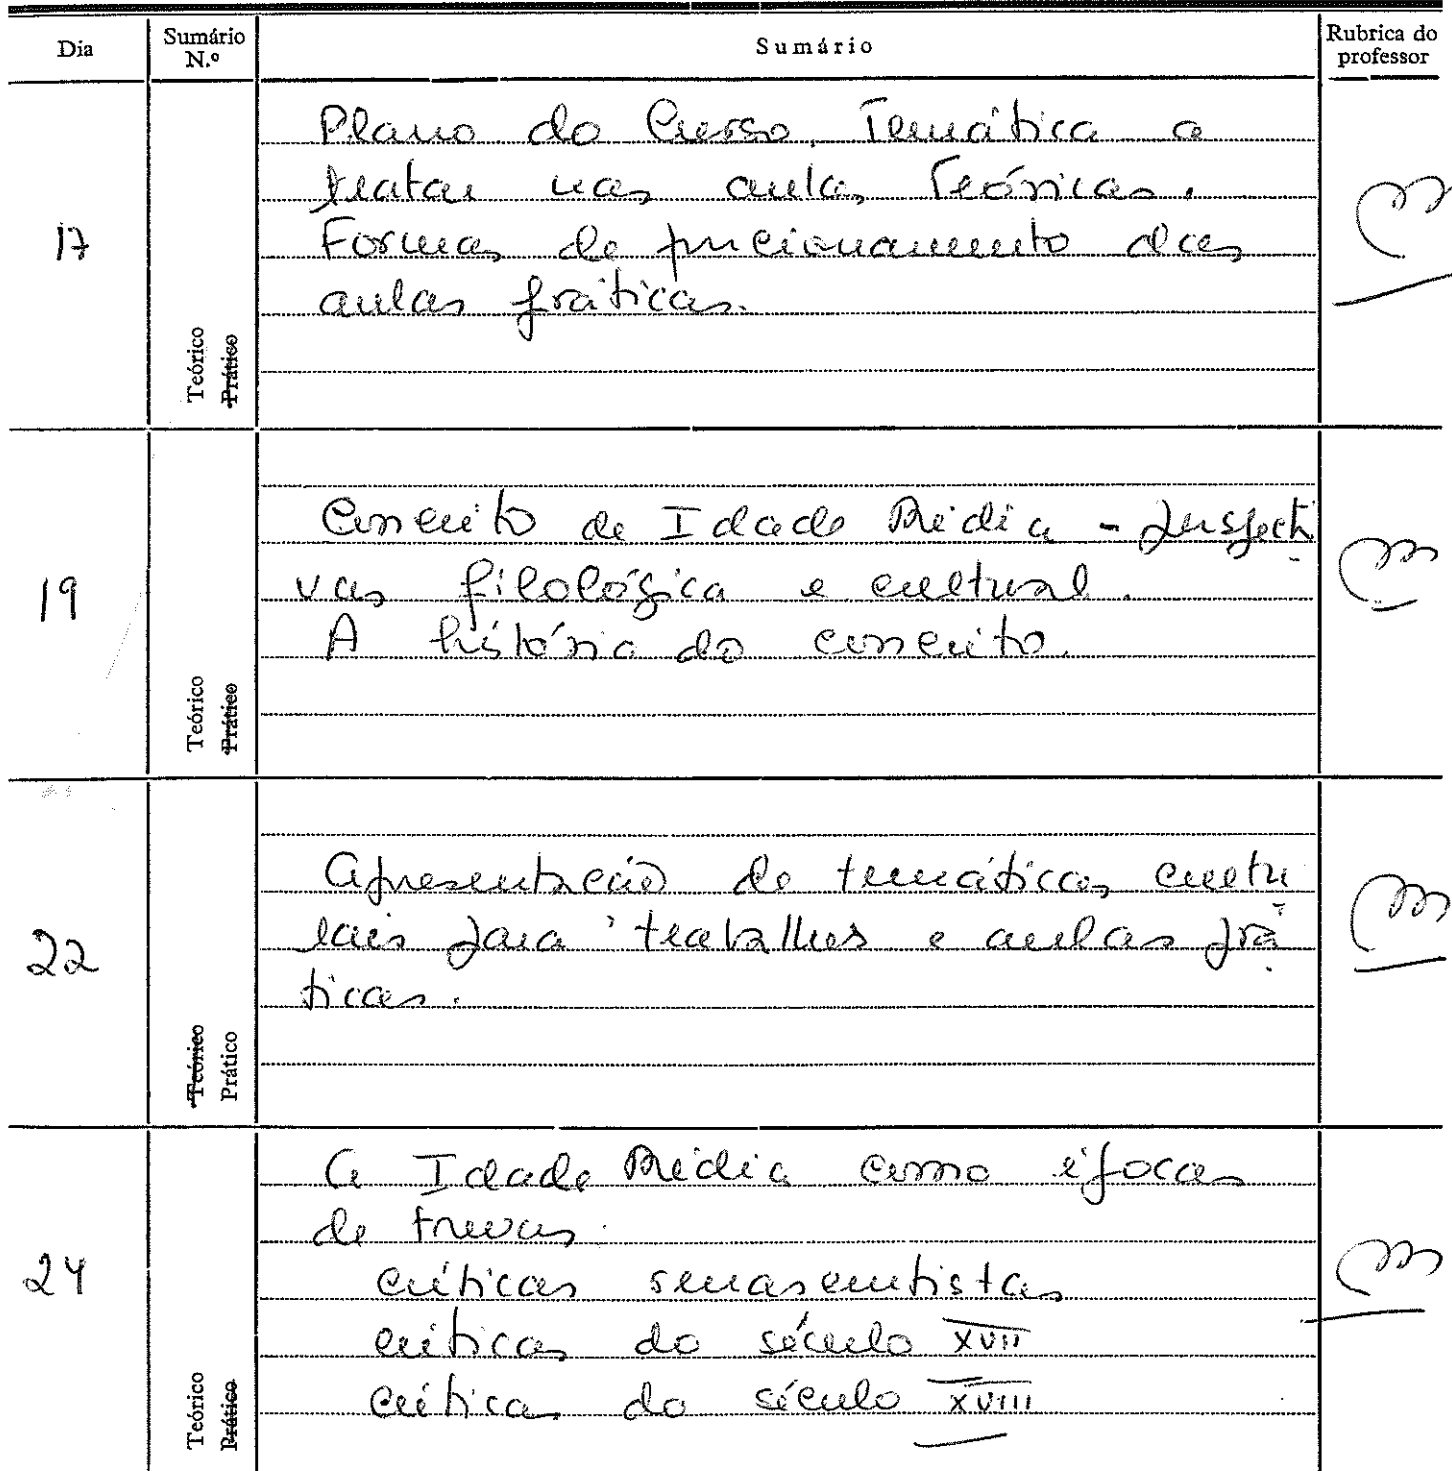 Dia Sumário N.º Sumário Rubrica do professor
17
Plano do Curso. Temática a
tratar nas aulas Teóricas.
Formas de funcionamento das
aulas práticas.
Teórico
Prático
19
Conceito de Idade Média - perspecti
vas filológica e cultural.
A história do conceito.
Teórico
Prático
22
Apresentação de temáticas cultu
rais para trabalhos e aulas prá
ticas.
Teórico
Prático
24
A Idade Média como épocas
de trevas
críticas renascentistas
críticas do século XVII
críticas do século XVIII
Teórico
Prático